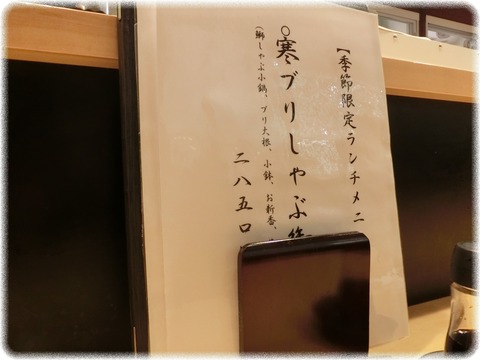 【季節限定ランチメニ
○寒ブリしゃぶ
(鰤しゃぶ小鍋、ブリ大根、小鉢、お新香、
二八五〇